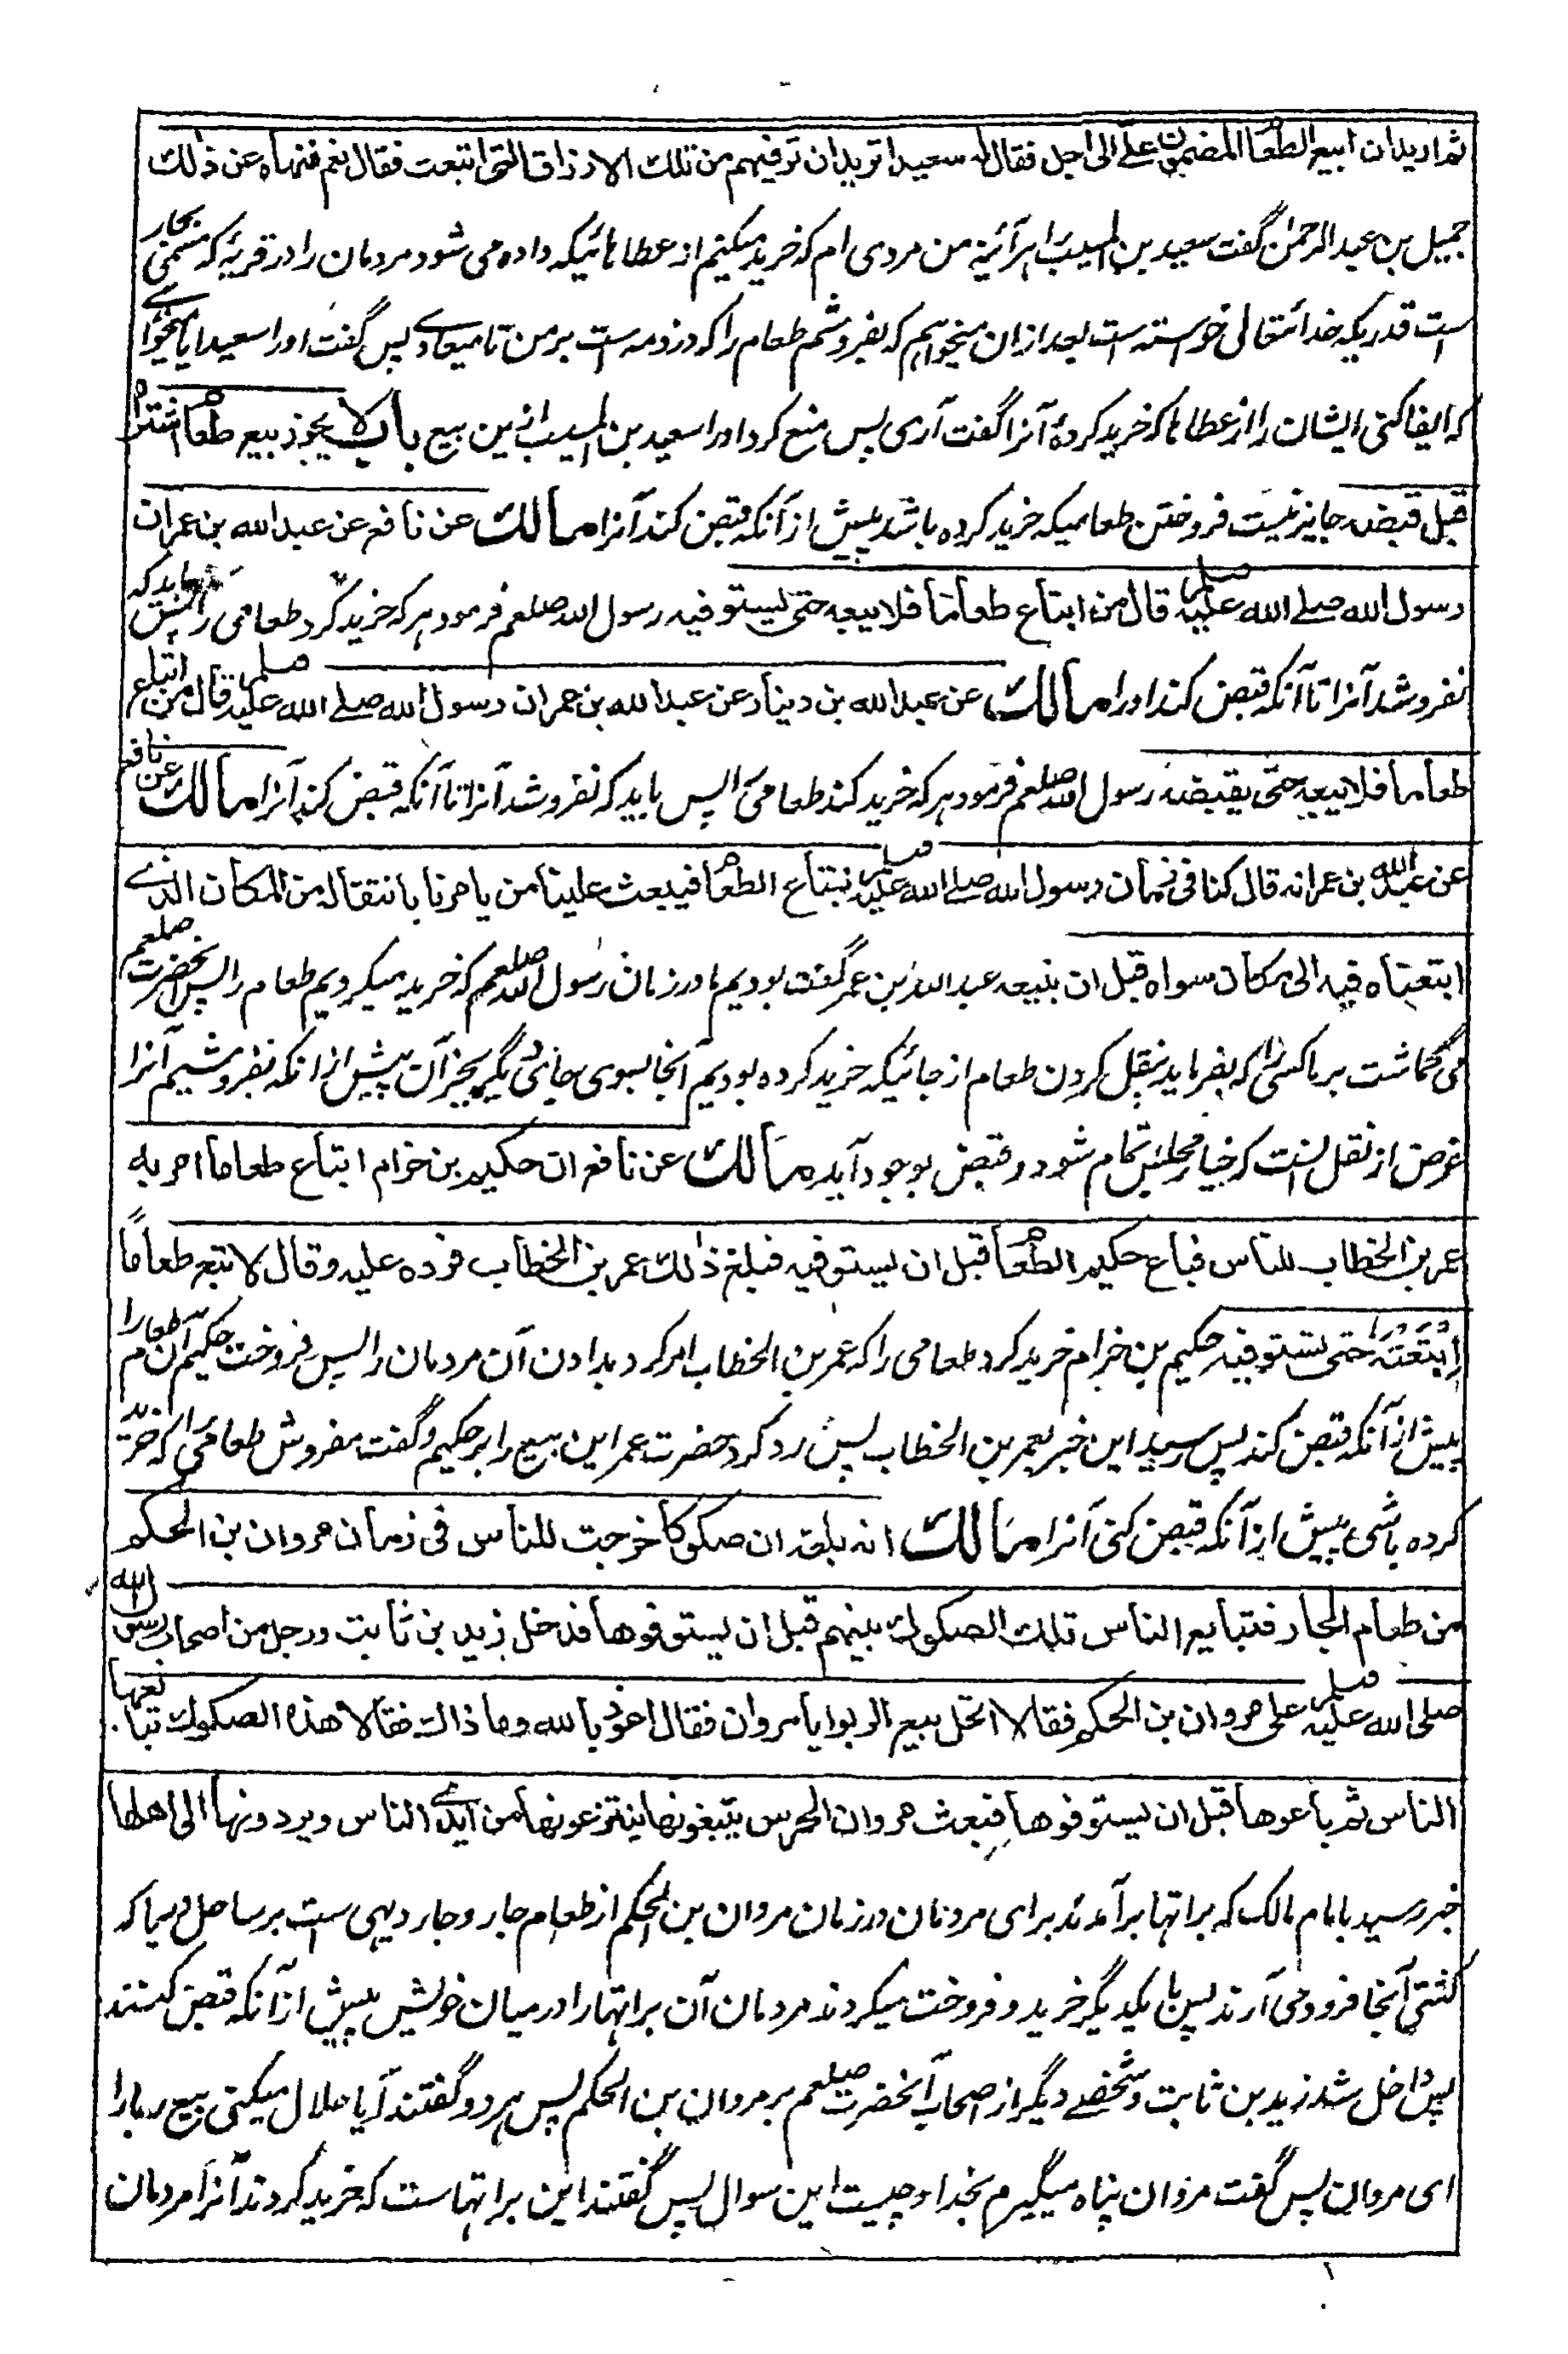 ثم اريد ان ابيع الطعام المضمون علي الى اجل فقال له سعيد اتريد ان توفيهم من تلك الارزاق التي ابتعت فقال نعم فنهاه عن ذلك
جميل بن عبد الرحمن گفت سعيد بن المسيب را هر آئينه من مردى ام كه خريد ميكنم از عطاهائيكه داده مى شود مردمان را در قريۀ كه مسمى بجار
است قدريكه خدائتعالى خواسته است بعد ازان ميخواهم كه بفروشم طعام را كه در ذمه است بر من تا ميعادے پس گفت او را سعيد ايا ميخواهے
كه ايفا كنى ايشان را از عطاها كه خريد كردۀ آنرا گفت آرى پس منع كرد او را سعيد بن المسيب ازين بيع باب لا يجوز بيع طعام اشتراه
قبل قبضه جايز نيست فروختن طعاميكه خريد كرده باشد پيش از آنكه قبض كند آنرا مالك عن نافع عن عبد الله بن عمر ان
رسول الله صلے الله عليه وسلم قال من ابتاع طعاما فلا يبعه حتى يستوفيه رسول الله صلعم فرمود هر كه خريد كرد طعامى را پس بايد كه
نفروشد آنرا تا آنكه قبض كند او را مالك عن عبد الله بن دينار عن عبد الله بن عمر ان رسول الله صلے الله عليه وسلم قال من ابتاع
طعاما فلا يبعه حتى يقبضه رسول الله صلعم فرمود هر كه خريد كند طعامى را پس بايد كه نفروشد آنرا تا آنكه قبض كند آنرا مالك عن نافع
عن عبد الله بن عمر انه قال كنا فى زمان رسول الله صلے الله عليه وسلم نبتاع الطعام فيبعث علينا من يامرنا بانتقاله من المكان الذے
ابتعناه فيه الى مكان سواه قبل ان نبيعه عبد الله بن عمر گفت بوديم ما در زمان رسول الله صلعم كه خريد ميكرديم طعام را پس آنحضرت صلعم
مى گماشت بر ما كسى را كه بفرمايد بنقل كردن طعام از جائيكه خريد كرده بوديم آنجا بسوى جاى ديگر بجز آن پيش از انكه نفروشيم آنرا
غرض از نقل انست كه خيار مجلس تمام شود و قبض بوجود آيد مالك عن نافع ان حكيم بن حزام ابتاع طعاما امر به
عمر بن الخطاب للناس فباع حكيم الطعام قبل ان يستوفيه فبلغ ذلك عمر بن الخطاب فرده عليه وقال لا تبع طعاما
ابتعته حتى تستوفيه حكيم بن حزام خريد كرد طعامى را كه عمر بن الخطاب امر كرد بدادن آن مردمان را پس فروخت حكيم آن طعام را
پيش از آنكه قبض كند پس رسيد اين خبر بعمر بن الخطاب پس رد كرد حضرت عمر اين بيع را بر حكيم و گفت مفروش طعامى را كه خريد
كرده باشى پيش از آنكه قبض كنى آنرا مالك انه بلغه ان صكوكا خرجت للناس فى زمان مروان بن الحكم
من طعام الجار فتبايع الناس تلك الصكوك بينهم قبل ان يستوفوها فدخل زيد بن ثابت ورجل من اصحاب رسول الله
صلى الله عليه وسلم على مروان بن الحكم فقالا اتحل بيع الربوا يا مروان فقال اعوذ بالله وما ذاك فقالا هذه الصكوك تبايعها
الناس ثم باعوها قبل ان يستوفوها فبعث مروان الحرس يتبعونها ينتزعونها من ايدے الناس ويردونها الى اهلها
خبر رسيد بامام مالك كه براتها برآمدند براى مردمان در زمان مروان بن الحكم از طعام جار و جار ديهى ست بر ساحل دريا كه
كشتى آنجا فرود مى آرند پس با يكديگر خريد و فروخت ميكردند مردمان آن براتها را در ميان خويش پيش از آنكه قبض كنند
پس داخل شد زيد بن ثابت و شخصے ديگر از اصحاب آنحضرت صلعم بر مروان بن الحكم پس هر دو گفتند آيا حلال ميكنى بيع ربا را
اى مروان پس گفت مروان پناه ميگيرم بخدا و چيست اين سوال پس گفتند اين براتهاست كه خريد كردند آنرا مردمان